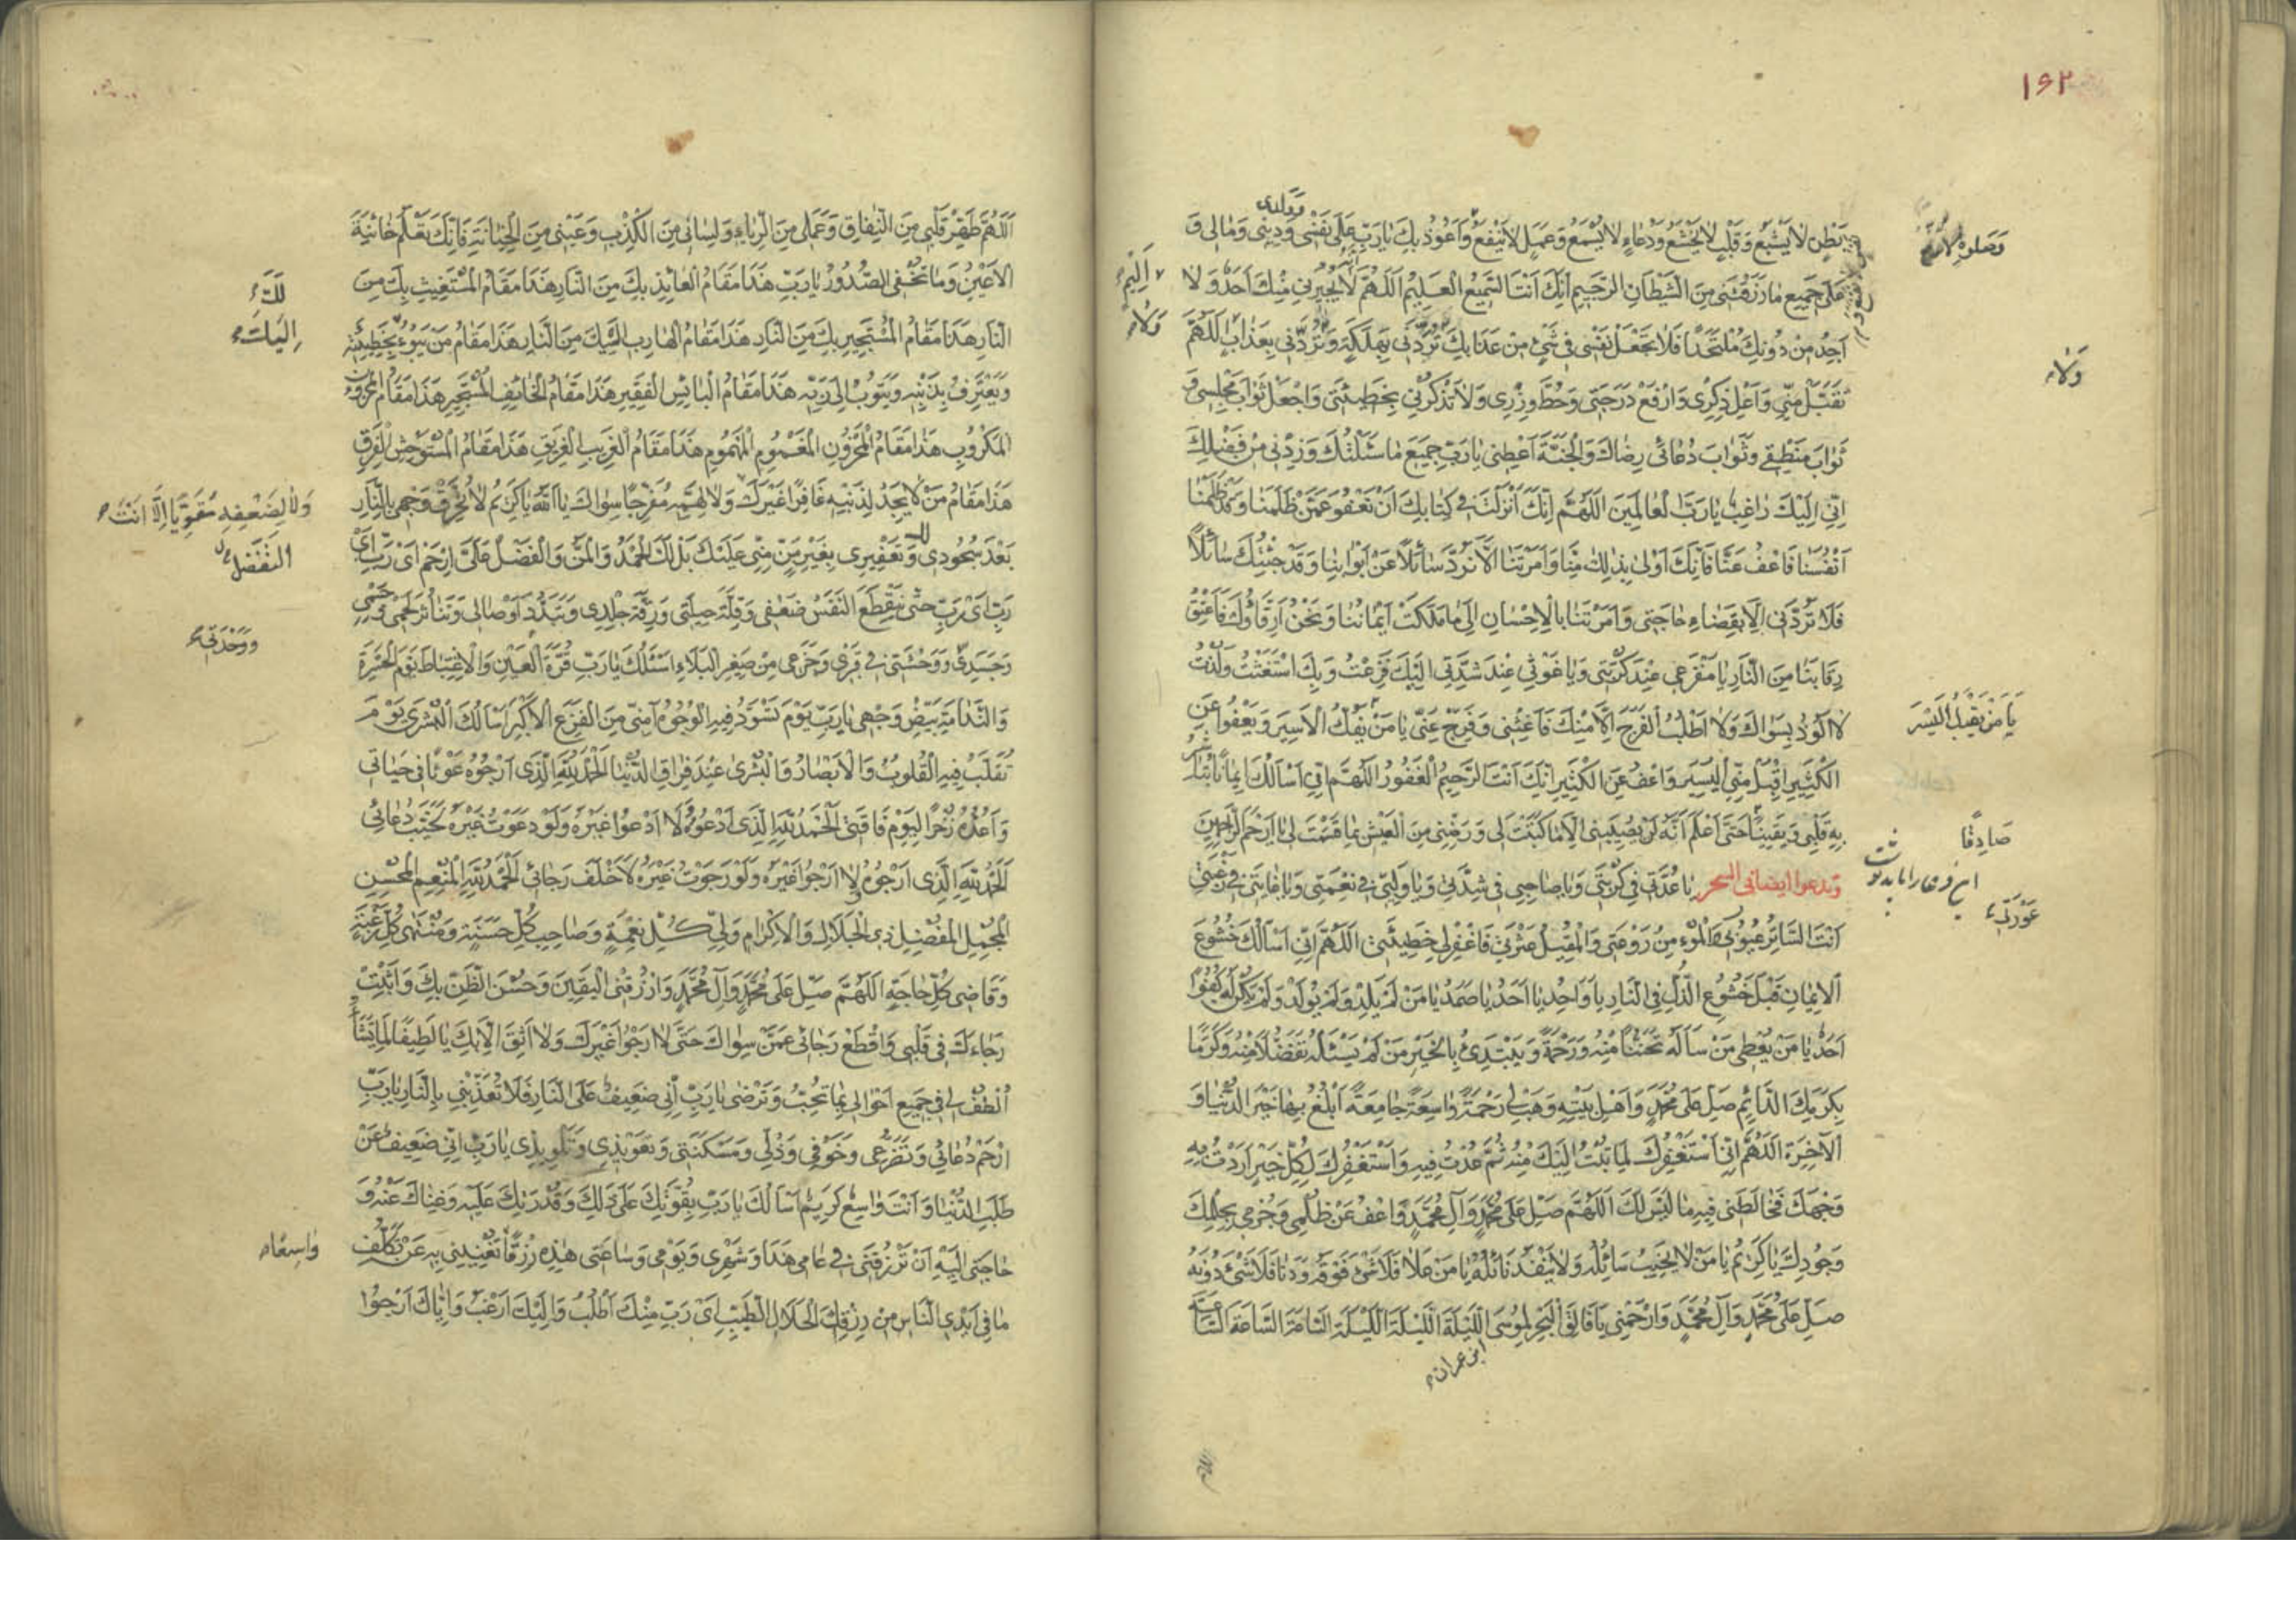 ١٦٢
وولدی
بَطْنٍ لَا يَشْبَعُ وَقَلْبٍ لَا يَخْشَعُ وَدُعَاءٍ لَا يُسْمَعُ وَعَمَلٍ لَا يَنْفَعُ وَاَعُوذُ بِكَ يَا رَبِّ عَلَى نَفْسِي وَدِينِي وَمَالِي وَ
وَصَلوةٍ لا
عَلَى جَمِيعِ مَا رَزَقْتَنِي مِنَ الشَّيْطَانِ الرَّجِيمِ اِنَّكَ اَنْتَ السَّمِيعُ الْعَلِيمُ اَللّٰهُمَّ لَا يُجِيرُنِي مِنْكَ اَحَدٌ وَلَا
اَجِدُ مِنْ دُونِكَ مُلْتَحَدًا فَلَا تَجْعَلْ نَفْسِي فِي شَيْءٍ مِنْ عَذَابِكَ تَرُدَّنِي بِهَلَكَةٍ وَتَرُدَّنِي بِعَذَابٍ اَللّٰهُمَّ
اَلِيمٍ
وَلَا
وَلَا
تَقَبَّلْ مِنِّي وَاَعْلِ ذِكْرِي وَارْفَعْ دَرَجَتِي وَحُطَّ وِزْرِي وَلَا تَذْكُرْنِي بِخَطِيئَتِي وَاجْعَلْ ثَوَابَ مَجْلِسِي وَ
ثَوَابَ مَنْطِقِي وَثَوَابَ دُعَائِي رِضَاكَ وَالْجَنَّةَ اَعْطِنِي يَا رَبِّ جَمِيعَ مَا سَئَلْتُكَ وَزِدْنِي مِنْ فَضْلِكَ
اِنِّي اِلَيْكَ رَاغِبٌ يَا رَبَّ الْعَالَمِينَ اَللّٰهُمَّ اِنَّكَ اَنْزَلْتَ فِي كِتَابِكَ اَنْ نَعْفُوَ عَمَّنْ ظَلَمَنَا وَقَدْ ظَلَمْنَا
اَنْفُسَنَا فَاعْفُ عَنَّا فَاِنَّكَ اَوْلَى بِذٰلِكَ مِنَّا وَاَمَرْتَنَا اَلَّا نَرُدَّ سَائِلًا عَنْ اَبْوَابِنَا وَقَدْ جِئْتُكَ سَائِلًا
فَلَا تَرُدَّنِي اِلَّا بِقَضَاءِ حَاجَتِي وَاَمَرْتَنَا بِالْاِحْسَانِ اِلَى مَا مَلَكَتْ اَيْمَانُنَا وَنَحْنُ اَرِقَّاؤُكَ فَاَعْتِقْ
رِقَابَنَا مِنَ النَّارِ يَا مَفْزَعِي عِنْدَ كُرْبَتِي وَيَا غَوْثِي عِنْدَ شِدَّتِي اِلَيْكَ فَزِعْتُ وَبِكَ اسْتَغَثْتُ وَلُذْتُ
لَا اَلُوذُ بِسِوَاكَ وَلَا اَطْلُبُ الْفَرَجَ اِلَّا مِنْكَ فَاَغِثْنِي وَفَرِّجْ عَنِّي يَا مَنْ يَفُكُّ الْاَسِيرَ وَيَعْفُوا عَنِ
يَا مَنْ يَقْبَلُ الْيَسِيرَ
الْكَثِيرِ اقْبَلْ مِنِّي الْيَسِيرَ وَاعْفُ عَنِ الْكَثِيرِ اِنَّكَ اَنْتَ الرَّحِيمُ الْغَفُورُ اَللّٰهُمَّ اِنِّي اَسْاَلُكَ اِيمَانًا تُبَاشِرُ
بِهِ قَلْبِي وَيَقِينًا حَتَّى اَعْلَمَ اَنَّهُ لَنْ يُصِيبَنِي اِلَّا مَا كَتَبْتَ لِي وَرَضِّنِي مِنَ الْعَيْشِ بِمَا قَسَمْتَ لِي يَا اَرْحَمَ الرَّاحِمِينَ
صَادِقًا
وتدعوا ايضا في السحر يَا عُدَّتِي فِي كُرْبَتِي وَيَا صَاحِبِي فِي شِدَّتِي وَيَا وَلِيِّي فِي نِعْمَتِي وَيَا غَايَتِي فِي رَغْبَتِي
اَنْتَ السَّاتِرُ عُيُوبِي وَالْمُؤْمِنُ رَوْعَتِي وَالْمُقِيلُ عَثْرَتِي فَاغْفِرْ لِي خَطِيئَتِي اَللّٰهُمَّ اِنِّي اَسْاَلُكَ خُشُوعَ
عَوْرَتِي
الْاِيمَانِ قَبْلَ خُشُوعِ الذُّلِّ فِي النَّارِ يَا وَاحِدُ يَا اَحَدُ يَا صَمَدُ يَا مَنْ لَمْ يَلِدْ وَلَمْ يُولَدْ وَلَمْ يَكُنْ لَهُ كُفُوًا
اَحَدٌ يَا مَنْ يُعْطِي مَنْ سَاَلَهُ تَحَنُّنًا مِنْهُ وَرَحْمَةً وَيَبْتَدِئُ بِالْخَيْرِ مَنْ لَمْ يَسْئَلْهُ تَفَضُّلًا مِنْهُ وَكَرَمًا
بِكَرَمِكَ الدَّائِمِ صَلِّ عَلَى مُحَمَّدٍ وَاَهْلِ بَيْتِهِ وَهَبْ لِي رَحْمَةً وَاسِعَةً جَامِعَةً اَبْلُغُ بِهَا خَيْرَ الدُّنْيَا وَ
الْاٰخِرَةِ اَللّٰهُمَّ اِنِّي اَسْتَغْفِرُكَ لِمَا تُبْتُ اِلَيْكَ مِنْهُ ثُمَّ عُدْتُ فِيهِ وَاَسْتَغْفِرُكَ لِكُلِّ خَيْرٍ اَرَدْتُ بِهِ
وَجْهَكَ فَخَالَطَنِي فِيهِ مَا لَيْسَ لَكَ اَللّٰهُمَّ صَلِّ عَلَى مُحَمَّدٍ وَآلِ مُحَمَّدٍ وَاعْفُ عَنْ ظُلْمِي وَجُرْمِي بِحِلْمِكَ
وَجُودِكَ يَا كَرِيمُ يَا مَنْ لَا يَخِيبُ سَائِلُهُ وَلَا يَنْفَدُ نَائِلُهُ يَا مَنْ عَلَا فَلَا شَيْءَ فَوْقَهُ وَدَنَا فَلَا شَيْءَ دُونَهُ
صَلِّ عَلَى مُحَمَّدٍ وَآلِ مُحَمَّدٍ وَارْحَمْنِي يَا فَالِقَ الْبَحْرِ لِمُوسَى اللَّيْلَةَ اللَّيْلَةَ اللَّيْلَةَ السَّاعَةَ السَّاعَةَ السَّاعَةَ
ابن عمران
اَللّٰهُمَّ طَهِّرْ قَلْبِي مِنَ النِّفَاقِ وَعَمَلِي مِنَ الرِّيَاءِ وَلِسَانِي مِنَ الْكَذِبِ وَعَيْنِي مِنَ الْخِيَانَةِ فَاِنَّكَ تَعْلَمُ خَائِنَةَ
الْاَعْيُنِ وَمَا تُخْفِي الصُّدُورُ يَا رَبِّ هَذَا مَقَامُ الْعَائِذِ بِكَ مِنَ النَّارِ هَذَا مَقَامُ الْمُسْتَغِيثِ بِكَ مِنَ
لَكَ
النَّارِ هَذَا مَقَامُ الْمُسْتَجِيرِ بِكَ مِنَ النَّارِ هَذَا مَقَامُ الْهَارِبِ اِلَيْكَ مِنَ النَّارِ هَذَا مَقَامُ مَنْ يَبُوءُ بِخَطِيئَتِهِ
اِلَيْكَ
وَيَعْتَرِفُ بِذَنْبِهِ وَيَتُوبُ اِلَى رَبِّهِ هَذَا مَقَامُ الْبَائِسِ الْفَقِيرِ هَذَا مَقَامُ الْخَائِفِ الْمُسْتَجِيرِ هَذَا مَقَامُ الْمَحْزُونِ
الْمَكْرُوبِ هَذَا مَقَامُ الْمَحْزُونِ الْمَغْمُومِ الْمَهْمُومِ هَذَا مَقَامُ الْغَرِيبِ الْغَرِيقِ هَذَا مَقَامُ الْمُسْتَوْحِشِ الْفَرِقِ
هَذَا مَقَامُ مَنْ لَا يَجِدُ لِذَنْبِهِ غَافِرًا غَيْرَكَ وَلَا لِهَمِّهِ مُفَرِّجًا سِوَاكَ يَا اَللّٰهُ يَا كَرِيمُ لَا تُحْرِقْ وَجْهِي بِالنَّارِ
وَلَا لِضَعْفِهِ مُقَوِّيًا اِلَّا اَنْتَ
بَعْدَ سُجُودِي لَكَ وَتَعْفِيرِي بِغَيْرِ مَنٍّ مِنِّي عَلَيْكَ بَلْ لَكَ الْحَمْدُ وَالْمَنُّ وَالْفَضْلُ عَلَيَّ اِرْحَمْ اَيْ رَبِّ اَيْ
التَّفَضُّلُ
رَبِّ اَيْ رَبِّ حَتَّى يَنْقَطِعَ النَّفَسُ ضَعْفِي وَقِلَّةَ حِيلَتِي وَرِقَّةَ جِلْدِي وَتَبَدُّدَ اَوْصَالِي وَتَنَاثُرَ لَحْمِي وَجِسْمِي
وَجَسَدِي وَوَحْشَتِي فِي قَبْرِي وَجَزَعِي مِنْ صَغِيرِ الْبَلَاءِ اَسْئَلُكَ يَا رَبِّ قُرَّةَ الْعَيْنِ وَالْاِغْتِبَاطَ يَوْمَ الْحَسْرَةِ
وَوَحْدَتِي
وَالنَّدَامَةِ بَيِّضْ وَجْهِي يَا رَبِّ يَوْمَ تَسْوَدُّ فِيهِ الْوُجُوهُ آمِنِّي مِنَ الْفَزَعِ الْاَكْبَرِ اَسْاَلُكَ الْبُشْرَى يَوْمَ
تُقَلَّبُ فِيهِ الْقُلُوبُ وَالْاَبْصَارُ وَالْبُشْرَى عِنْدَ فِرَاقِ الدُّنْيَا اَلْحَمْدُ لِلّٰهِ الَّذِي اَرْجُوهُ عَوْنًا فِي حَيَاتِي
وَاُعِدُّهُ ذُخْرًا لِيَوْمِ فَاقَتِي اَلْحَمْدُ لِلّٰهِ الَّذِي اَدْعُوهُ وَلَا اَدْعُوا غَيْرَهُ وَلَوْ دَعَوْتُ غَيْرَهُ لَخَيَّبَ دُعَائِي
اَلْحَمْدُ لِلّٰهِ الَّذِي اَرْجُوهُ وَلَا اَرْجُوا غَيْرَهُ وَلَوْ رَجَوْتُ غَيْرَهُ لَاَخْلَفَ رَجَائِي اَلْحَمْدُ لِلّٰهِ الْمُنْعِمِ الْمُحْسِنِ
الْمُجْمِلِ الْمُفْضِلِ ذِي الْجَلَالِ وَالْاِكْرَامِ وَلِيِّ كُلِّ نِعْمَةٍ وَصَاحِبِ كُلِّ حَسَنَةٍ وَمُنْتَهَى كُلِّ رَغْبَةٍ
وَقَاضِي كُلِّ حَاجَةٍ اَللّٰهُمَّ صَلِّ عَلَى مُحَمَّدٍ وَآلِ مُحَمَّدٍ وَارْزُقْنِي الْيَقِينَ وَحُسْنَ الظَّنِّ بِكَ وَاَثْبِتْ
رَجَاءَكَ فِي قَلْبِي وَاقْطَعْ رَجَائِي عَمَّنْ سِوَاكَ حَتَّى لَا اَرْجُوَ اغَيْرَكَ وَلَا اَثِقَ اِلَّا بِكَ يَا لَطِيفًا لِمَا يَشَاءُ
اُلْطُفْ لِي فِي جَمِيعِ اَحْوَالِي بِمَا تُحِبُّ وَتَرْضَى يَا رَبِّ اِنِّي ضَعِيفٌ عَلَى النَّارِ فَلَا تُعَذِّبْنِي بِالنَّارِ يَا رَبِّ
ارْحَمْ دُعَائِي وَتَضَرُّعِي وَخَوْفِي وَذُلِّي وَمَسْكَنَتِي وَتَعْوِيذِي وَتَلْوِيذِي يَا رَبِّ اِنِّي ضَعِيفٌ عَنْ
طَلَبِ الدُّنْيَا وَاَنْتَ وَاسِعٌ كَرِيمٌ اَسْاَلُكَ يَا رَبِّ بِقُوَّتِكَ عَلَى ذَلِكَ وَقُدْرَتِكَ عَلَيْهِ وَغِنَاكَ عَنْهُ وَ
حَاجَتِي اِلَيْهِ اَنْ تَرْزُقَنِي فِي عَامِي هَذَا وَشَهْرِي وَيَوْمِي وَسَاعَتِي هَذِهِ رِزْقًا تُغْنِينِي بِهِ عَنْ تَكَلُّفِ
وَاسِعًا
مَا فِي اَيْدِي النَّاسِ مِنْ رِزْقِكَ الْحَلَالِ الطَّيِّبِ اَيْ رَبِّ مِنْكَ اَطْلُبُ وَاِلَيْكَ اَرْغَبُ وَاِيَّاكَ اَرْجُوا